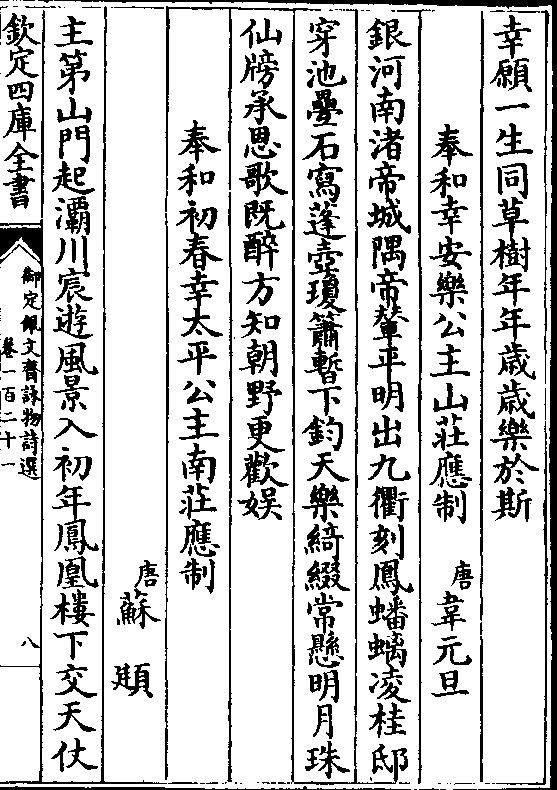 幸願一生同草樹年年歲歲樂於斯
奉和幸安樂公主山莊應制 唐韋元旦
銀河南渚帝城隅帝輦平明出九衢刻鳳蟠螭凌桂邸
穿池疊石寫蓬壺瓊簫暫下鈞天樂綺綴常懸明月珠
仙牓承恩歌既醉方知朝野更歡娛
奉和初春幸太平公主南莊應制
唐蘇頲
主第山門起灞川宸遊風景入初年鳳凰樓下交天仗
欽定四庫全書
御定佩文齋詠物詩選
卷一百二十一
八